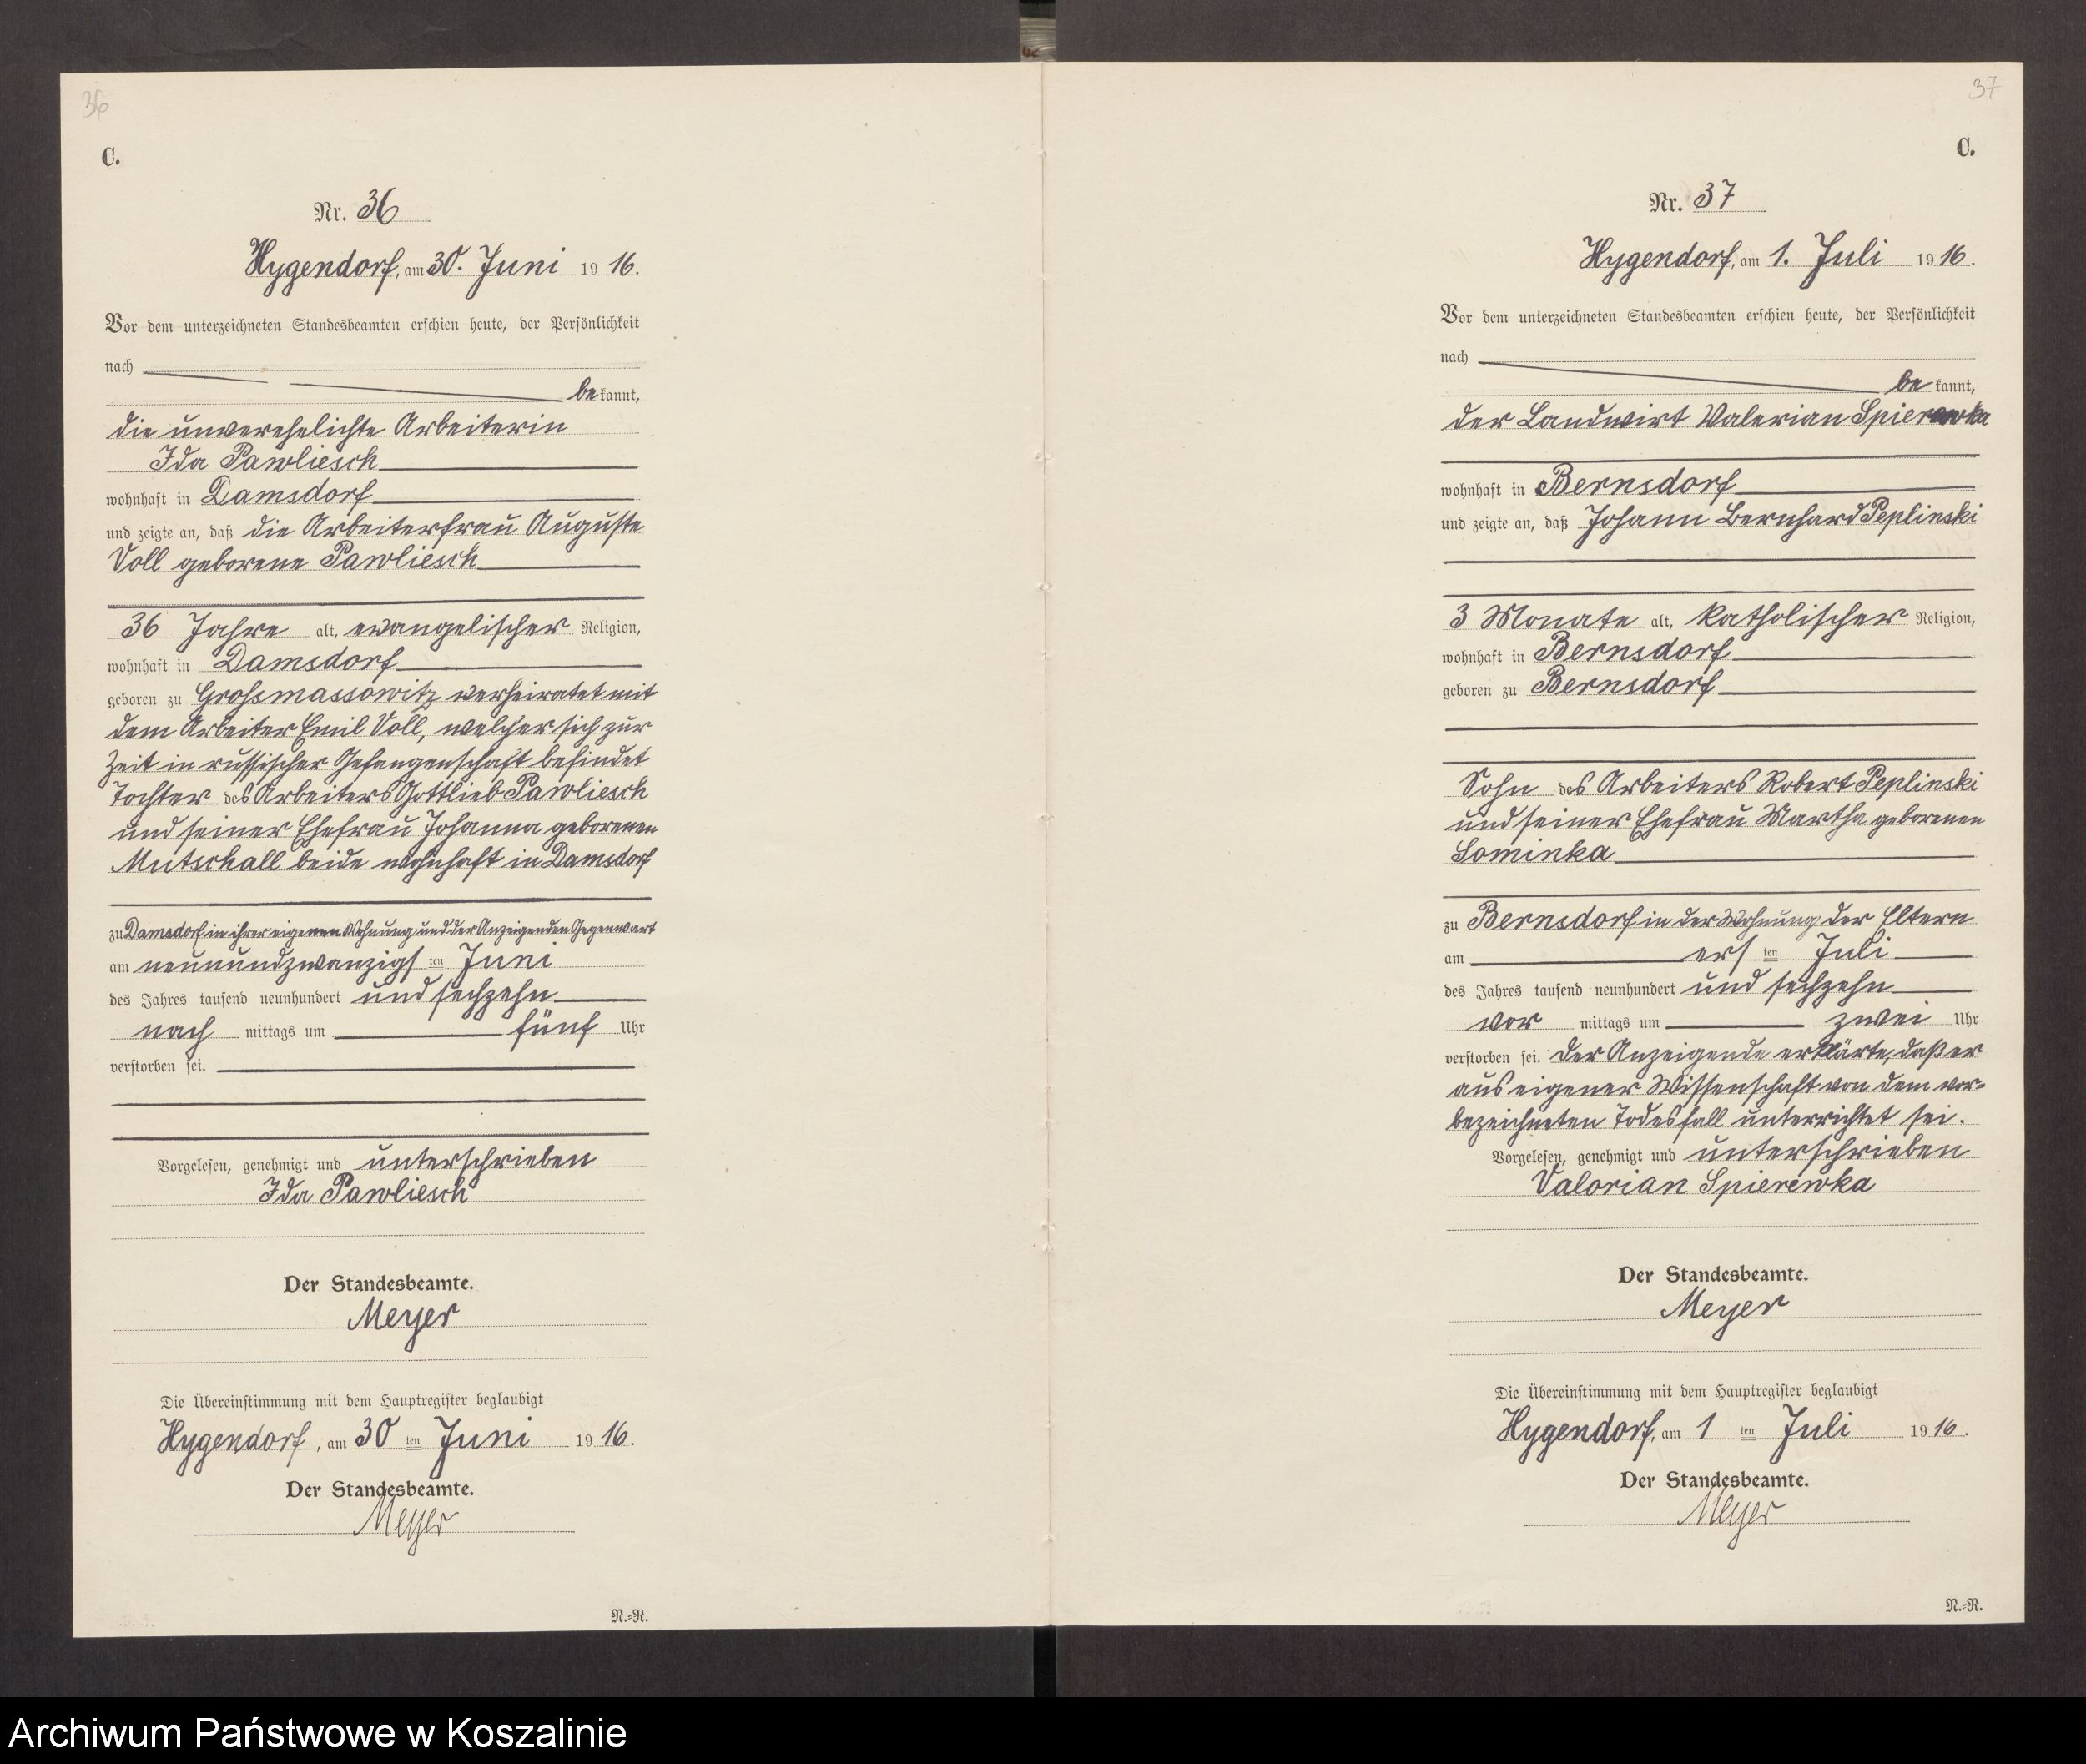 36
C.
Nr. 36
Hygendorf, am 30. Juni 1916.
Vor dem unterzeichneten Standesbeamten erschien heute, der Persönlichkeit
nach
bekannt,
die unverehelichte Arbeiterin
Ida Pawliesch
wohnhaft in Damsdorf
und zeigte an, daß die Arbeiterfrau Auguste
Voll geborene Pawliesch
36 Jahre alt, evangelischer Religion,
wohnhaft in Damsdorf
geboren zu Grossmassowitz verheiratet mit
dem Arbeiter Emil Voll, welcher sich zur
Zeit in russischer Gefangenschaft befindet
Tochter des Arbeiters Gottlieb Pawliesch
und seiner Ehefrau Johanna geborenen
Mutschall beide wohnhaft in Damsdorf
zu Damsdorf in ihrer eigenen Wohnung und der Anzeigenden Gegenwart
am neunundzwanzigsten Juni
des Jahres tausend neunhundert und sechzehn
nach mittags um fünf Uhr
verstorben sei.
Vorgelesen, genehmigt und unterschrieben
Ida Pawliesch
Der Standesbeamte.
Meyer
Die Übereinstimmung mit dem Hauptregister beglaubigt
Hygendorf, am 30 ten Juni 1916.
Der Standesbeamte.
Meyer
N.=R.
37
C.
Nr. 37
Hygendorf, am 1. Juli 1916.
Vor dem unterzeichneten Standesbeamten erschien heute, der Persönlichkeit
nach
bekannt,
der Landwirt Valerian Spierewka
wohnhaft in Bernsdorf
und zeigte an, daß Johann Bernhard Peplinski
3 Monate alt, katholischer Religion,
wohnhaft in Bernsdorf
geboren zu Bernsdorf
Sohn des Arbeiters Robert Peplinski
und seiner Ehefrau Martha geborenen
Lominka
zu Bernsdorf in der Wohnung der Eltern
am ersten Juli
des Jahres tausend neunhundert und sechzehn
vor mittags um zwei Uhr
verstorben sei. Der Anzeigende erklärte, daß er
aus eigener Wissenschaft von dem vor=
bezeichneten Todesfall unterrichtet sei.
Vorgelesen, genehmigt und unterschrieben
Valorian Spierewka
Der Standesbeamte.
Meyer
Die Übereinstimmung mit dem Hauptregister beglaubigt
Hygendorf, am 1 ten Juli 1916.
Der Standesbeamte.
Meyer
N.=R.
Archiwum Państwowe w Koszalinie